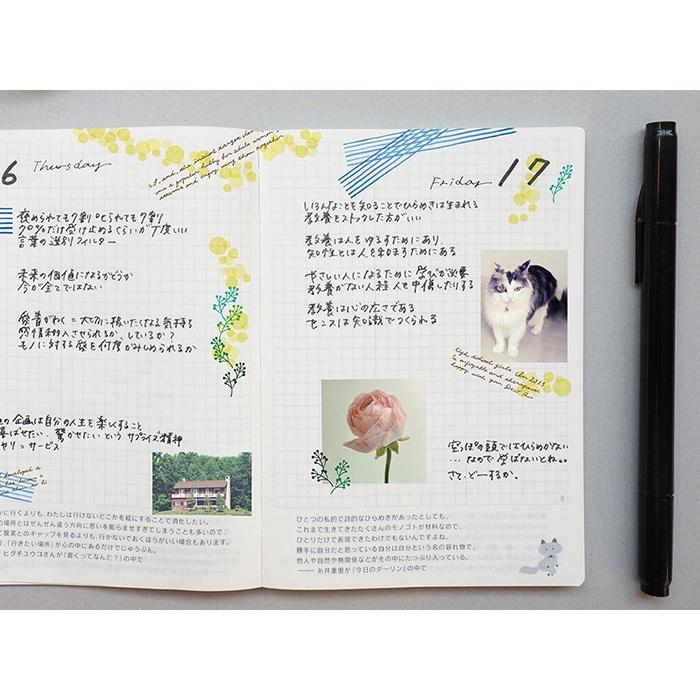 6 Thursday
褒められても7割 けなされても7割
70%だけ受け止めるくらいが丁度いい
言葉の選別フィルター
未来の価値になるかどうか
今が全てではない
愛着がわく=大切に扱いたくなる気持ち
感情移入させられるか、しているか?
モノに対する愛を何度かみしめられるか
企画は自分の人生を楽しくすること
喜ばせたい、驚かせたいという サプライズ精神
=サービス
に行くよりも、わたしは行けないどこかを絵にすることで消化したい。
の場所とはぜんぜん違う方向に思いを膨らませすぎてしまうことも多いので、
て現実とのギャップを見るよりも、行かないでおくほうがいい場合もあります。
「行きたい場所」が心の中にあるだけでじゅうぶん。
ヒグチユウコさんが『書くってなんだ?』の中で
Friday 17
いろんなことを知ることでひらめきは生まれる
教養をストックした方がいい
教養は人をゆるすためにあり、
知性とは人を和ますためにある
やさしい人になるために 学びが必要
教養がない人程 人を中傷したりする
教養は心の広さである
センスは知識でつくられる
high school girls
is enjoyable and
happy with you
空っぽの頭ではひらめかない
…なので学ばないとね。。
さて、どーするか。
8
ひとつの私的で詩的なひらめきがあったとしても、
これまで生きてきたたくさんのモノゴトが材料なので、
ひとりだけで表現できたわけでもないんですよね。
勝手に自分だと思っている自分は自分という名の容れ物で、
他人や自然や無関係などがその中にたっぷり入っている。
——糸井重里が『今日のダーリン』の中で